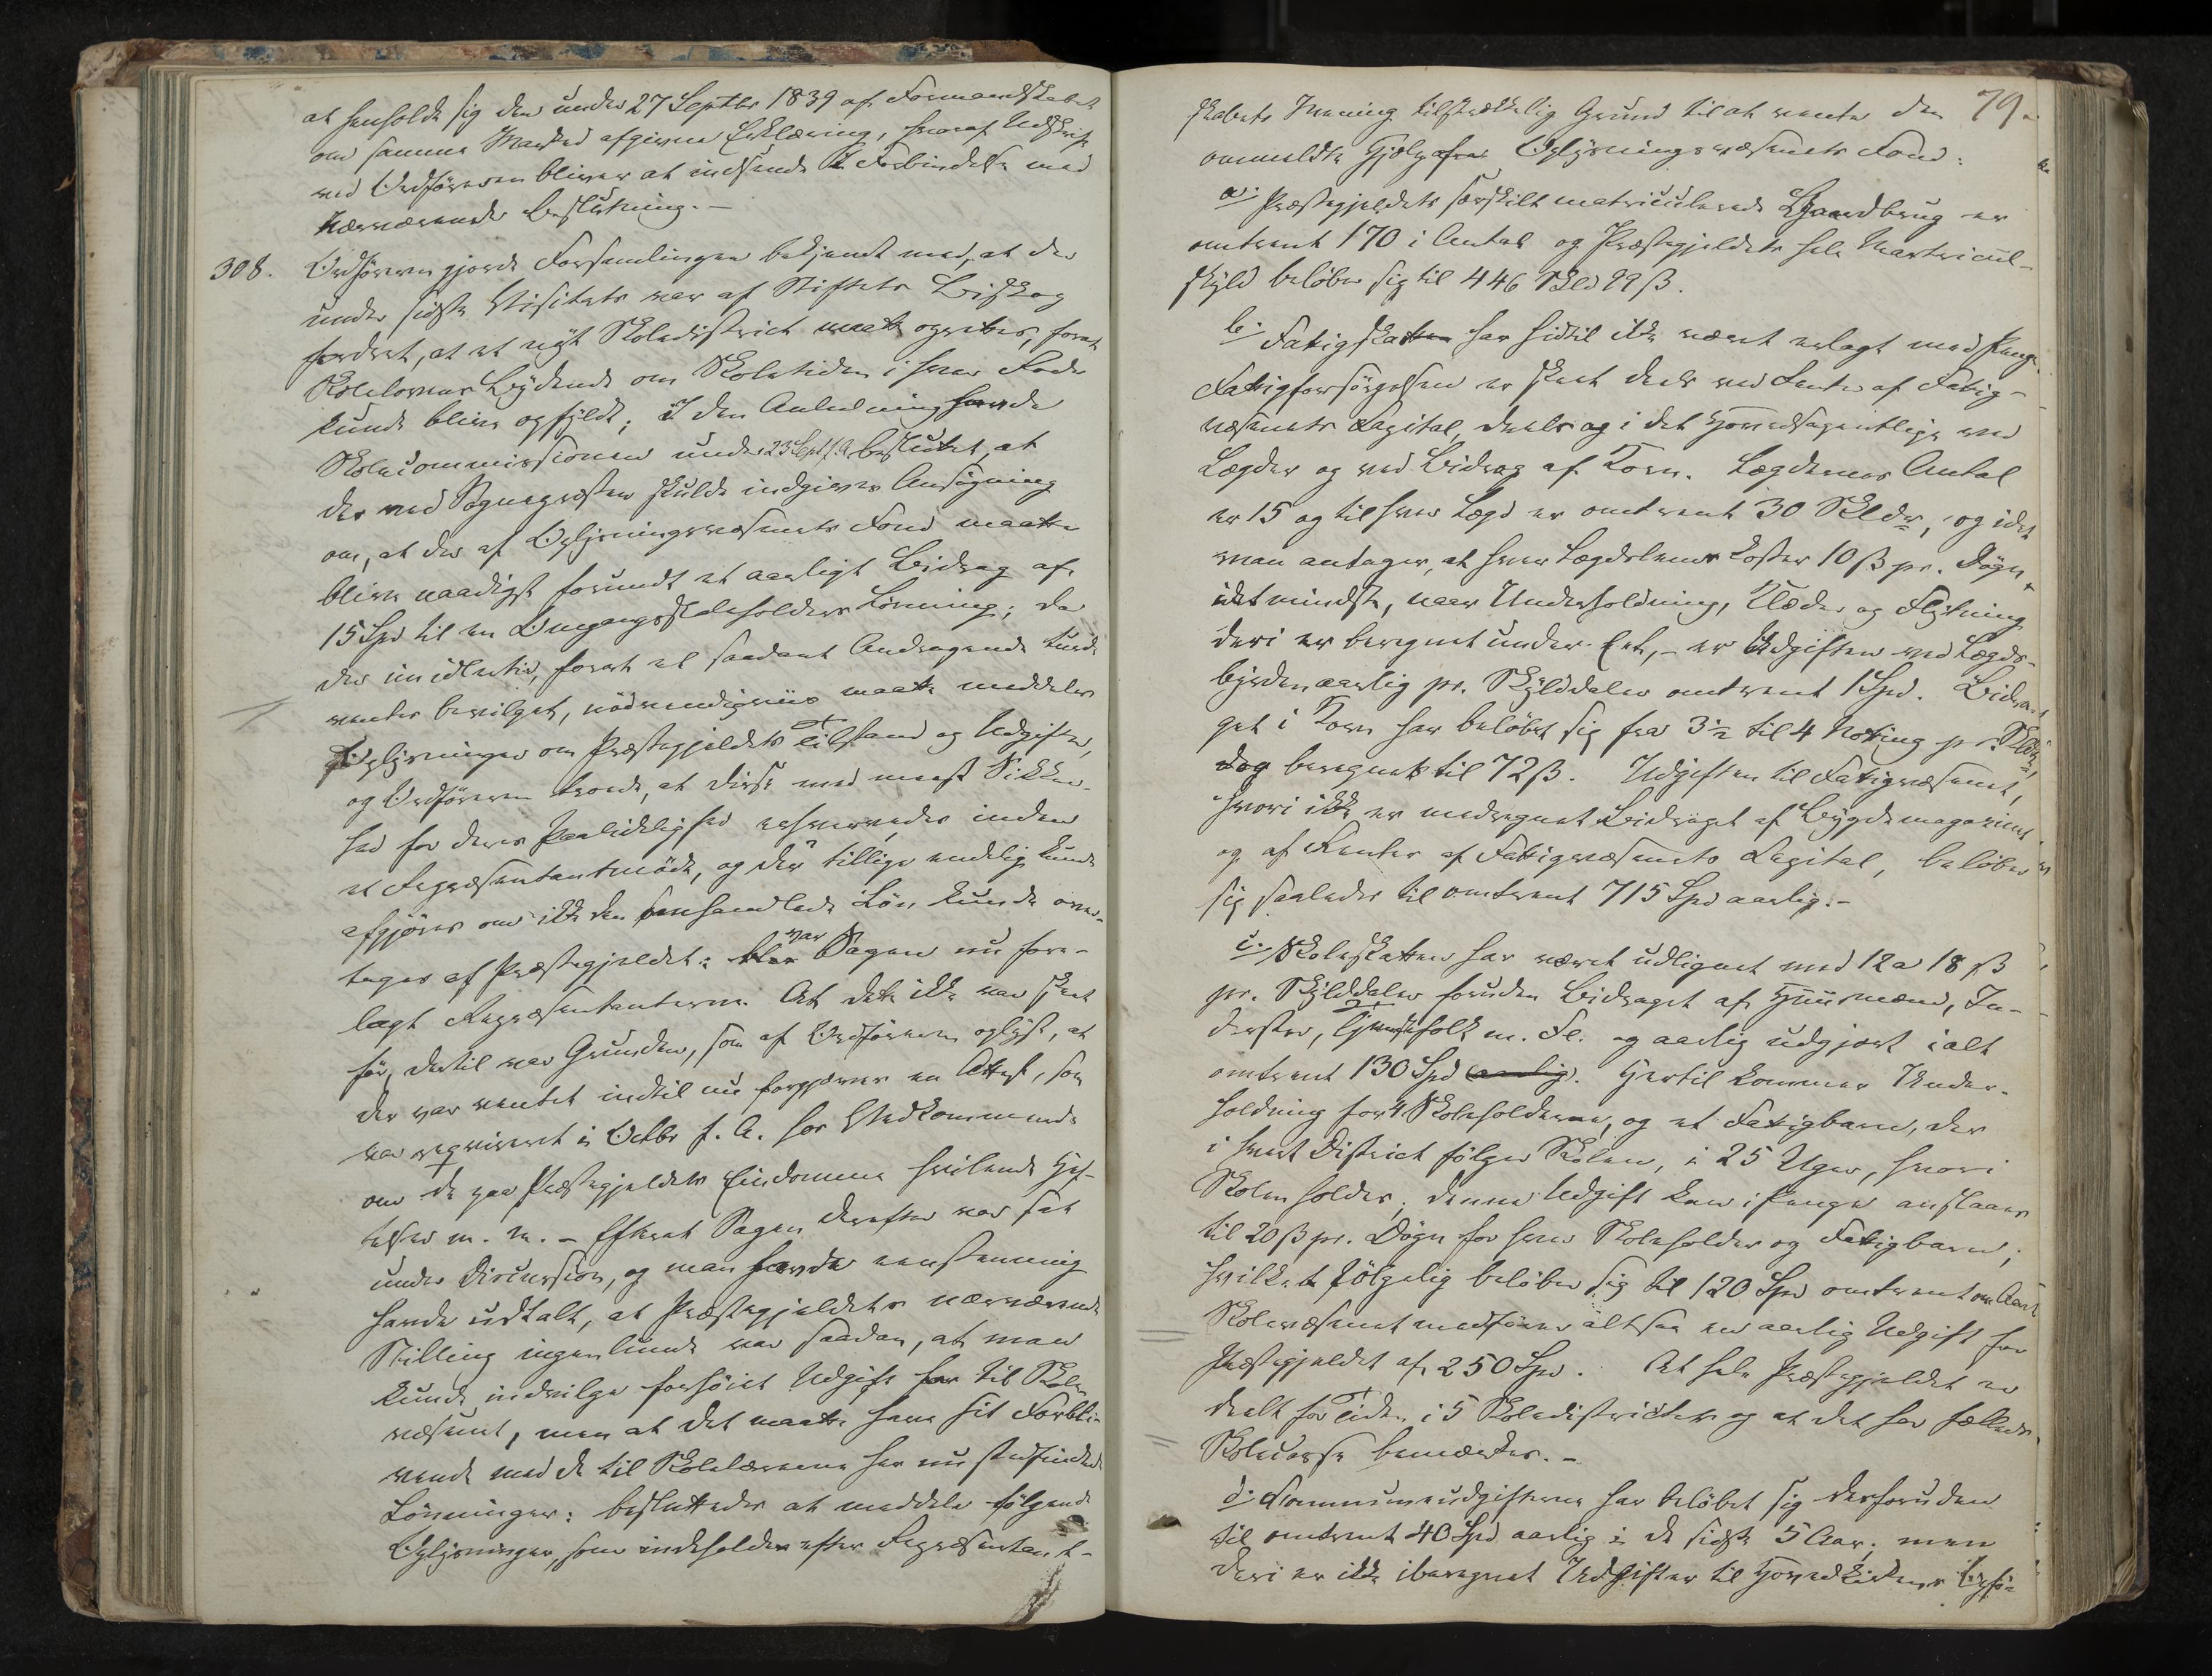 at henholde sig den under 27 Septbr 1839 af Formandskabet
om samme Marked afgivne Erklæring, hvoraf Udskrift
ved Ordføreren bliver at indsende i Forbindelse med
nærværende Beslutning. –
308. Ordføreren gjorde Forsamlingen bekjendt med, at der
under sidste Visitats var af Stiftets Biskop
fordret, at et nyt Skoledistrict maatte oprettes, forat
Skolelovens Bydende om Skoletiden i hver Rode
kunde blive opfyldt; I den Anledning havde
Skolecommissionen under 23 Sept f. A. besluttet, at
der ved Sognepræsten skulde indgives Ansøgning
om, at der af Oplysningsvæsenets Fond maatte
blive naadigst forundt et aarligt Bidrag af
15 Spd til en Omgangsskoleholders Lønning; da
der imidlertid, forat et saadant Andragende turde
ventes bevilget, nødvendigviis maatte meddeles
Oplysninger om Præstegjeldets Tilstand og Udgifter,
og Ordføreren troede, at disse med meest Sikker-
hed for deres Paalidelighed erhvervedes inden
et Repræsentantmøde, og der tillige endelig kunde
afgjøres om ikke den omhandlede Løn kunde over-
tages af Præstegjeldet: blev var Sagen nu fore-
lagt Repræsentanterne. At dette ikke var skeet
før, dertil var Grunden, som af Ordføreren oplyst, at
der var ventet indtil nu forgjæves en Attest, som
var reqvireret i Octbr f. A. hos Vedkommende
om de paa Præstegjeldets Eiendomme hvilende Hef-
telser m. m. – Efterat Sagen derefter var sat
under Discussion, og man havde eenstemmig
havde udtalt, at Præstegjeldets nærværende
Stilling ingenlunde var saadan, at man
kunde indvilge forhøiet Udgift her til Skole-
væsenet, men at det maatte have sit Forbli-
vende med de til Skolelærerne her nu stedfindende
Lønninger: besluttedes at meddele følgende
Oplysninger, som indeholder efter Repræsentant-
79.
skabets Mening tilstrækkelig Grund til at vente den
ommeldte Hjælp af Oplysningsvæsenets Fond:
a: Præstegjeldets særskilt matriculerede Gaardbrug er
omtrent 170 i Antal og Præstegjeldets hele Martricul-
skyld beløber sig til 446 Skld 22 ß.
b: Fatigskatten har hidtil ikke været erlagt med Penge.
Fattigforsørgelsen er skeet deels ved Rente af Fattig-
væsenets Kapital, deels og i det Hovedsagentlige ved
Lægder og ved Bidrag af Korn. Lægdernes Antal
er 15 og til hver Lægd er omtrent 30 Skldr, og idet
man antager, at hver Lægdslem koster 10 ß pr. Døgn
idet mindste, naar Underholdning, Klæder og Flytning
deri er beregnet under Eet, – er Udgiften ved Lægds-
byrden aarlig pr. Skylddaler omtrent 1 Spd. Bidra-
get i Korn har beløbet sig fra 3½ til 4 Notting pr. Skldr,
dog beregnet til 72 ß. Udgiften til Fattigvæsenet,
hvori ikke er medregnet Bidraget af Bygdemagazinet
og af Renter af Fattigvæsenets Capital, beløber
sig saaledes til omtrent 715 Spd aarlig. –
c: Skoleskatten har været udlignet med 12 a 18 ß
pr. Skylddaler foruden Bidraget af Huusmænd, In-
derster, Tjenestefolk m. Fl. og aarlig udgjort ialt
omtrent 130 Spd aarlig. Hertil kommer Under-
holdning for 4 Skoleholderne, og et Fattigbarn, der
i hvert District følger Skolen, i 25 Uger, hvori
Skolen holdes; denne Udgift kan i Penge anslaaes
til 20 ß pr. Døgn for hver Skoleholder og Fattigbarn;
hvilket følgelig beløber sig til 120 Spd omtrent om Aaret.
Skolevæsenet medfører altsaa en aarlig Udgift for
Præstegjeldet af 250 Spd. At hele Præstegjeldet er
deelt for Tiden i 5 Skoledistricter og at det har fælleds
Skolecasse bemærkes. –
d: Communeudgifterne har beløbet sig desforuden
til omtrent 40 Spd aarlig i de sidste 5 Aar; men
deri er ikke iberegnet Udgifter til Hovedkirkens Opfø-